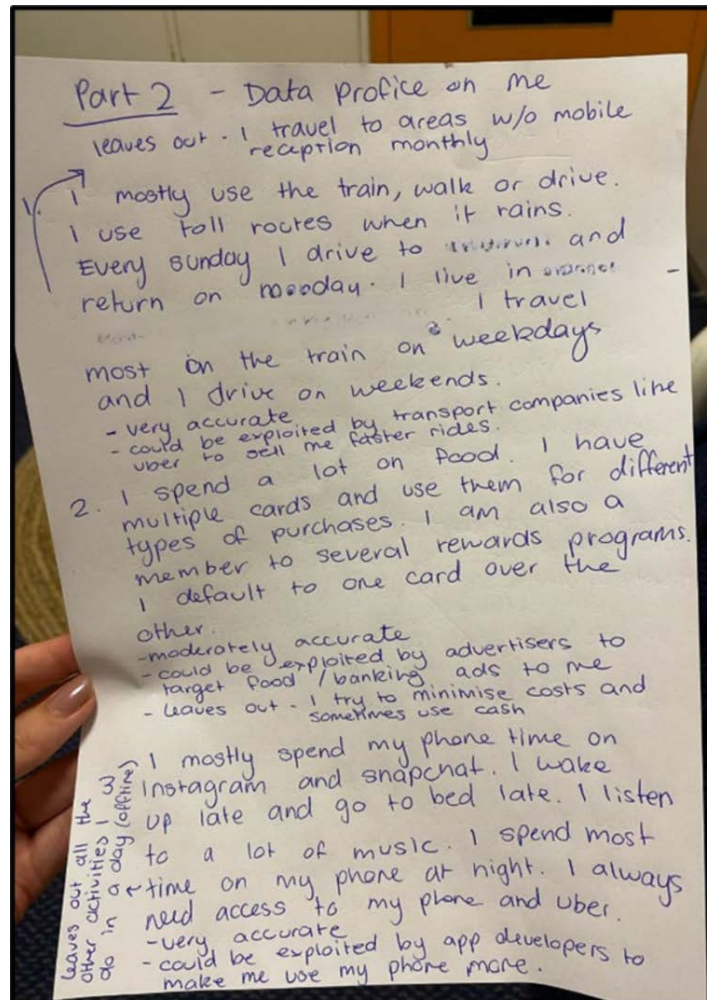 Part 2 - Data Profice on me
leaves out - I travel to areas w/o mobile
reception monthly
1. I mostly use the train, walk or drive.
I use toll routes when it rains.
Every sunday I drive to and
return on moooday. I live in -
I travel
most on the train on weekdays
and I drive on weekends.
- very accurate
- could be exploited by transport companies like
uber to sell me faster rides.
2. I spend a lot on food. I have
multiple cards and use them for different
types of purchases. I am also a
member to several rewards programs.
I default to one card over the
other.
- moderately accurate
- could be exploited by advertisers to
target food / banking ads to me
- leaves out - I try to minimise costs and
sometimes use cash
3 I mostly spend my phone time on
Instagram and snapchat. I wake
up late and go to bed late. I listen
to a lot of music. I spend most
time on my phone at night. I always
need access to my phone and uber.
- very accurate
- could be exploited by app developers to
make me use my phone more.
leaves out all the
other activities I
do in a day (offline)